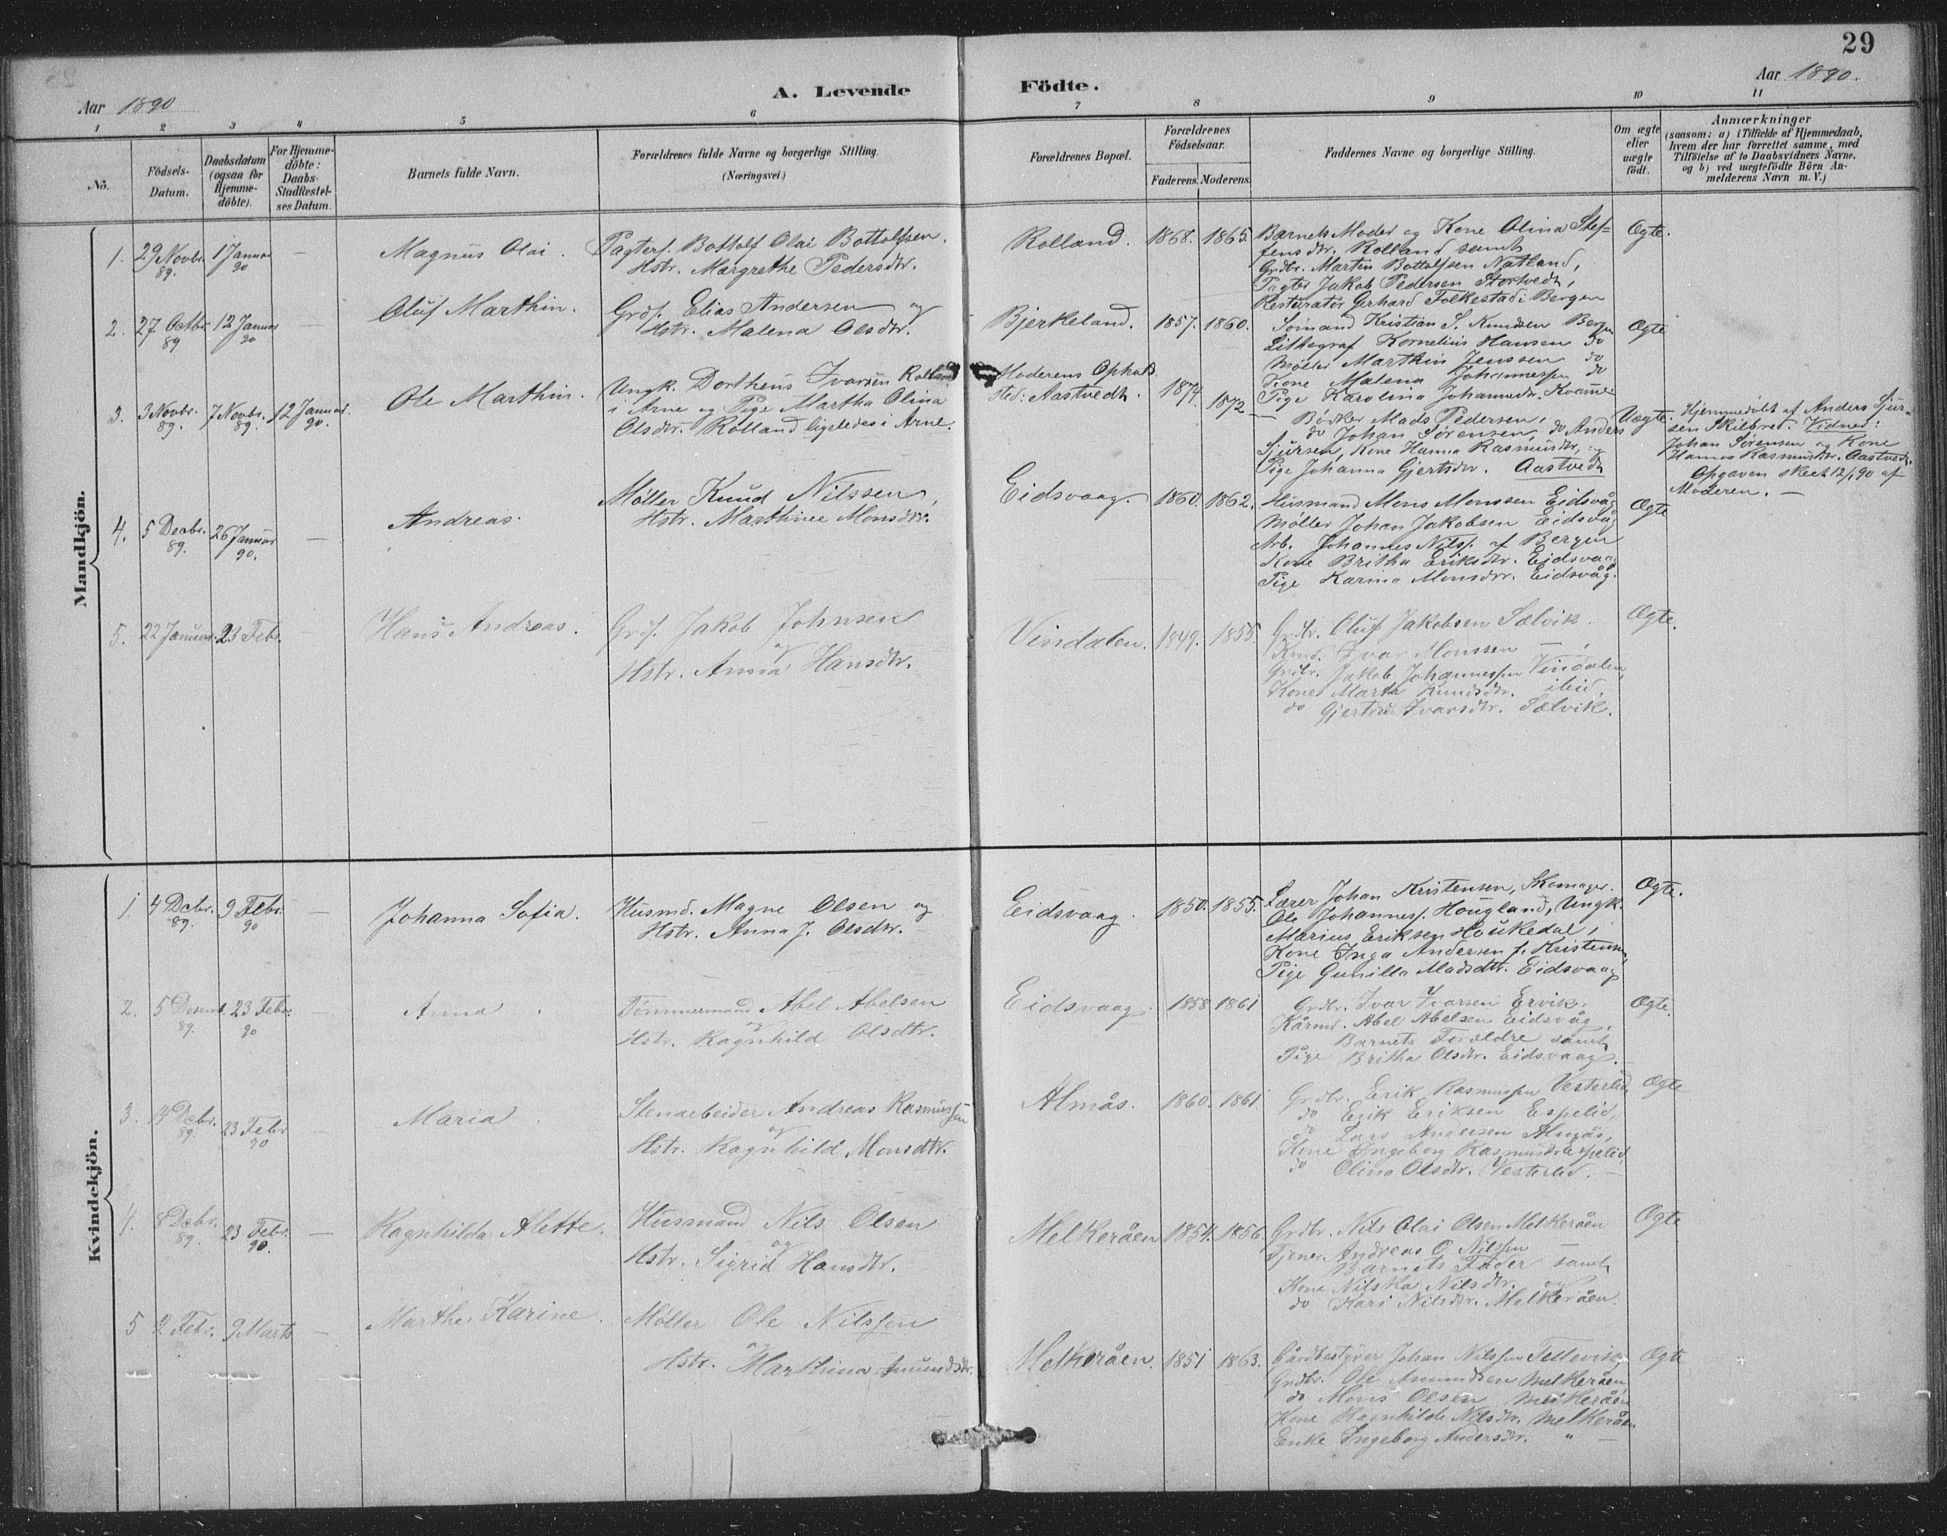 29
Aar 1890
A. Levende Födte.
Aar 1890.
1 2 3 4 5 6 7 8 9 10 11
No.
Födsels-
Datum.
Daabsdatum
(ogsaa for
Hjemme-
döbte).
For Hjemme-
döbte:
Daabs-
Stadfestel-
ses Datum.
Barnets fulde Navn.
Forældrenes fulde Navne og borgerlige Stilling.
(Næringsvei.)
Forældrenes Bopæl.
Forældrenes
Födselsaar.
Faderens. Moderens.
Faddernes Navne og borgerlige Stilling.
Om ægte
eller
uægte
födt.
Anmærkninger
(saasom: a) i Tilfælde af Hjemmedaab,
hvem der har forrettet samme, med
Tilföielse af to Daabsvidners Navne.
og b) ved uægtefödte Börn An-
melderens Navn m. V.)
Mandkjön.
1. 29 Novbr. 89. 1 Januar 90 —
Magnus Olai.
Pagter. Bottolf Olai Bottolfsen.
Hstr. Margrethe Pedersdtr.
Rolland. 1868. 1865.
Barnets Moder og Kone Olina Stef-
fensdtr. Rolland samt
Grdbr. Martin Bottolfsen Natland,
Pagter Jakob Pedersen Stortvedt,
Resturatør Gerhard Folkestad i Bergen
Ægte.
2. 27 Octbr. 89 12 Januar 90 —
Oluf Marthin.
Grdf. Elias Andersen og
Hstr. Malena Olsdtr.
Bjerkeland. 1857. 1860.
Sømand Kristian S. Knudsen Bergen
Lithograf Kornelius Hansen do
Møller Marthin Jenssen do
Kone Malena Johannessen do
Pige Karolina Johannesdtr. Kvamme
Ægte
3. 3 Novbr. 89. 7 Novbr. 89. 12 Januar. 90.
Ole Marthin.
Ungk. Dortheus Ivarsen Rolland
i Arne og Pige Martha Olina
Olsdtr. Rolland ligeledes i Arne.
Moderens Opholds
sted: Aastvedt. 1874. 1872
— Bødker Mads Pedersen,
do Johan Sørensen, do Anders
Sjursen, Kone Hanna Rasmusdtr,
Pige Johanna Gjertsdtr. Aastvedt
Uægte.
Hjemmedøbt af Anders Sjur-
sen Skilbred. Vidner:
Johan Sørensen og Kone
Hanna Rasmusdtr. Aastvedt.
Opgaven skeet 12/1 90 af
Moderen. —
4. 5 Decbr. 89. 26 Januar 90. —
Andreas.
Møller Knud Nilssen,
Hstr. Marthinee Monsdtr.
Eidsvaag. 1860. 1862.
Husmand Mons Monssen Eidsvåg
Møller Johan Jakobsen Eidsvåg
Arb. Johannes Nilsf. af Bergen
Kone Britha Eriksdtr. Eidsvaag
Pige Karina Monsdtr. Eidsvåg.
Ægte
5. 22 Januar. 23 Febr. —
Hans Andreas.
Grdf. Jakob Johnsen
og
Hstr. Anna Hansdtr.
Vindalen. 1849. 1855
Grdbr. Oluf Jakobsen Sælvik.
Ivar Monssen — ,
Grdbr. Jakob Johannessen Vindalen,
Kone Marta Knudsdtr. ibid.
do Gjertrud Ivarsdtr. Sælvik.
Ægte.
Kvindekjön.
1. 4 Decbr. 89. 9 Febr. 90 —
Johanna Sofia.
Husmd. Magne Olsen og
Hstr. Anna J. Olsdtr.
Eidsvaag. 1850. 1855.
Lærer Johan Kristensen, Skomager.
Ole Johannesf. Hougland, Ungk.
Marius Eriksen Houkedal,
Kone Inga Andersen f. Kristensen,
Pige Gunilla Madsdtr. Eidsvaag
Ægte.
2. 5 Desemb. 89. 23 Febr. 90 —
Anna.
Tømmermand Abel Abelsen
og
Hstr. Ragnhild Olsdtr.
Eidsvaag. 1858 1861
Grdbr. Ivar Ivarsen Ervik.
Kårmd. Abel Abelsen Eidsvåg,
Barnets Forældre samt
Pige Britha Olsdtr. Eidsvaag.
Ægte.
3. 14 Decbr. 89. 23 Febr 90 —
Maria.
Stenarbeider Andreas Rasmussen
og
Hstr. Ragnhild Monsdtr.
Almås. 1860. 1861
Grdbr. Erik Rasmussen Vesterlid,
do Erik Eriksen Espelid,
do Lars Andersen Almås,
Kone Ingeborg Rasmusdtr Espelid,
do Olina Olsdtr. Vesterlid. —
Ægte
4. 8 Decbr. 89. 23 Febr. 90. —
Ragnhilda Alette.
Husmand Nils Olsen
og
Hstr. Sigrid Hansdtr.
Melkeråen 1854. 1856.
Grdbr. Nils Olai Olsen Melkeråen
Tjener. Andreas O. Nilssen —
Barnets Fader samt
Kone Nilska Nilsdtr. og
do Kari Nilsdtr. Melkeråen.
Ægte
5 2 Febr. 9 Marts —
Marthe Karine.
Møller Ole Nilssen
og
Hstr. Marthina Amundsdtr.
Melkeråen. 1851 1863.
Gårdbestyrer Johan Nilssen Tellevik,
Grdbr. Ole Amundsen Melkeråen,
do Mons Olsen Melkeråen
Kone Ragnhilde Nilsdtr. Melkeråen
Enke Ingeborg Andersdtr. " —
Ægte